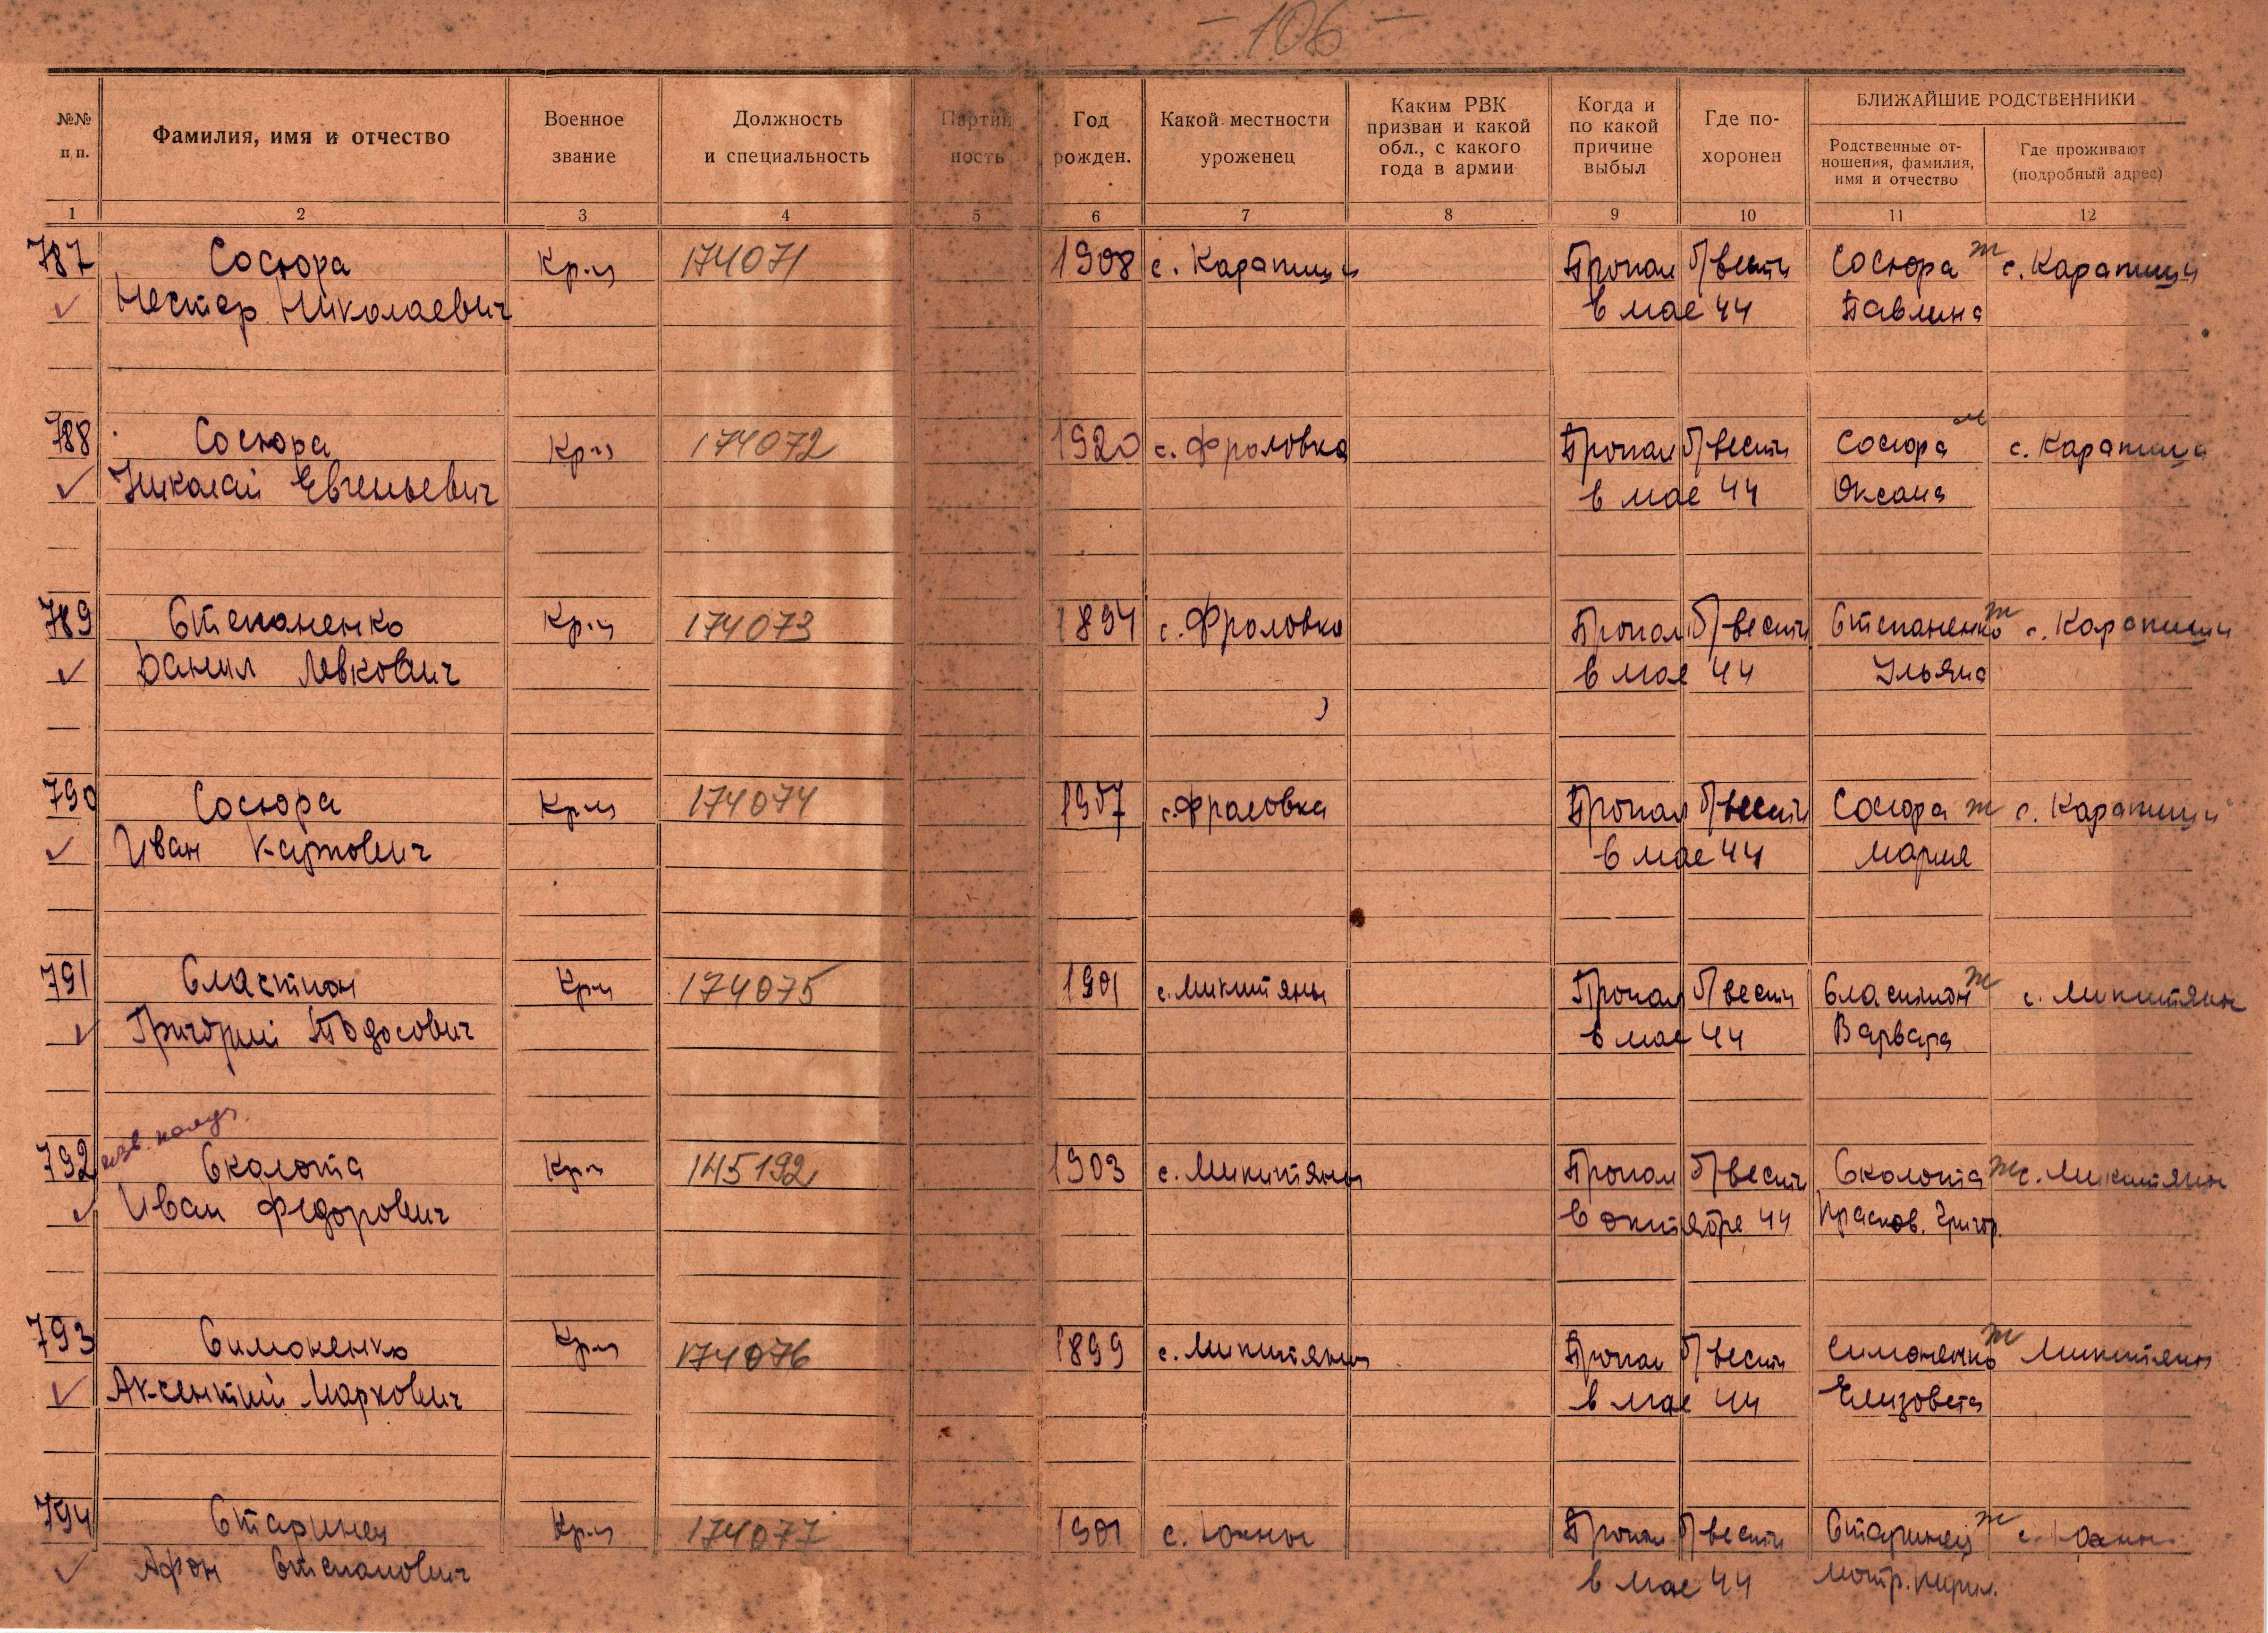 - 106 -
№№ п п.
Фамилия, имя и отчество
Военное звание
Должность и специальность
Партий ность
Год рожден.
Какой местности уроженец
Каким РВК призван и какой обл., с какого года в армии
Когда и по какой причине выбыл
Где по-хоронен
БЛИЖАЙШИЕ РОДСТВЕННИКИ
Родственные от-ношения, фамилия, имя и отчество
Где проживают (подробный адрес)
1 2 3 4 5 6 7 8 9 10 11 12
787 Сосюра Кр-ц 174071 1908 с. Карапиши Пропал б/вести Сосюра ж с. Карапиши
Нестер Николаевич в мае 44 Павлина
788 Сосюра Кр-ц 174072 1920 с. Фроловка Пропал б/вести Сосюра м с. Карапиши
Николай Евгеньевич в мае 44 Оксана
789 Степаненко Кр-ц 174073 1894 с. Фроловка Пропал б/вести Степаненко ж с. Карапиши
Данил Левкович в мае 44 Ульяна
790 Сосюра Кр-ц 174074 1907 с. Фроловка Пропал б/вести Сосюра ж с. Карапиши
Иван Карпович в мае 44 Мария
791 Сластион Кр-ц 174075 1901 с. Микитяны Пропал б/вести Сластион ж с. Микитяны
Григорий Тодосович в мае 44 Варвара
792 Сколота Кр-ц 145192 1903 с. Микитяны Пропал б/вести Сколота ж с. Микитяны
Иван Федорович в октябре 44 Прасков. Григор.
793 Симоненко Кр-ц 174076 1899 с. Микитяны Пропал б/вести Симоненко ж Микитяны
Аксентий Маркович в мае 44 Елизовета
794 Старинец Кр-ц 174077 1901 с. Пропал б/вести Старинец ж с.
Афон Степанович в мае 44 Мотр. Кирил.